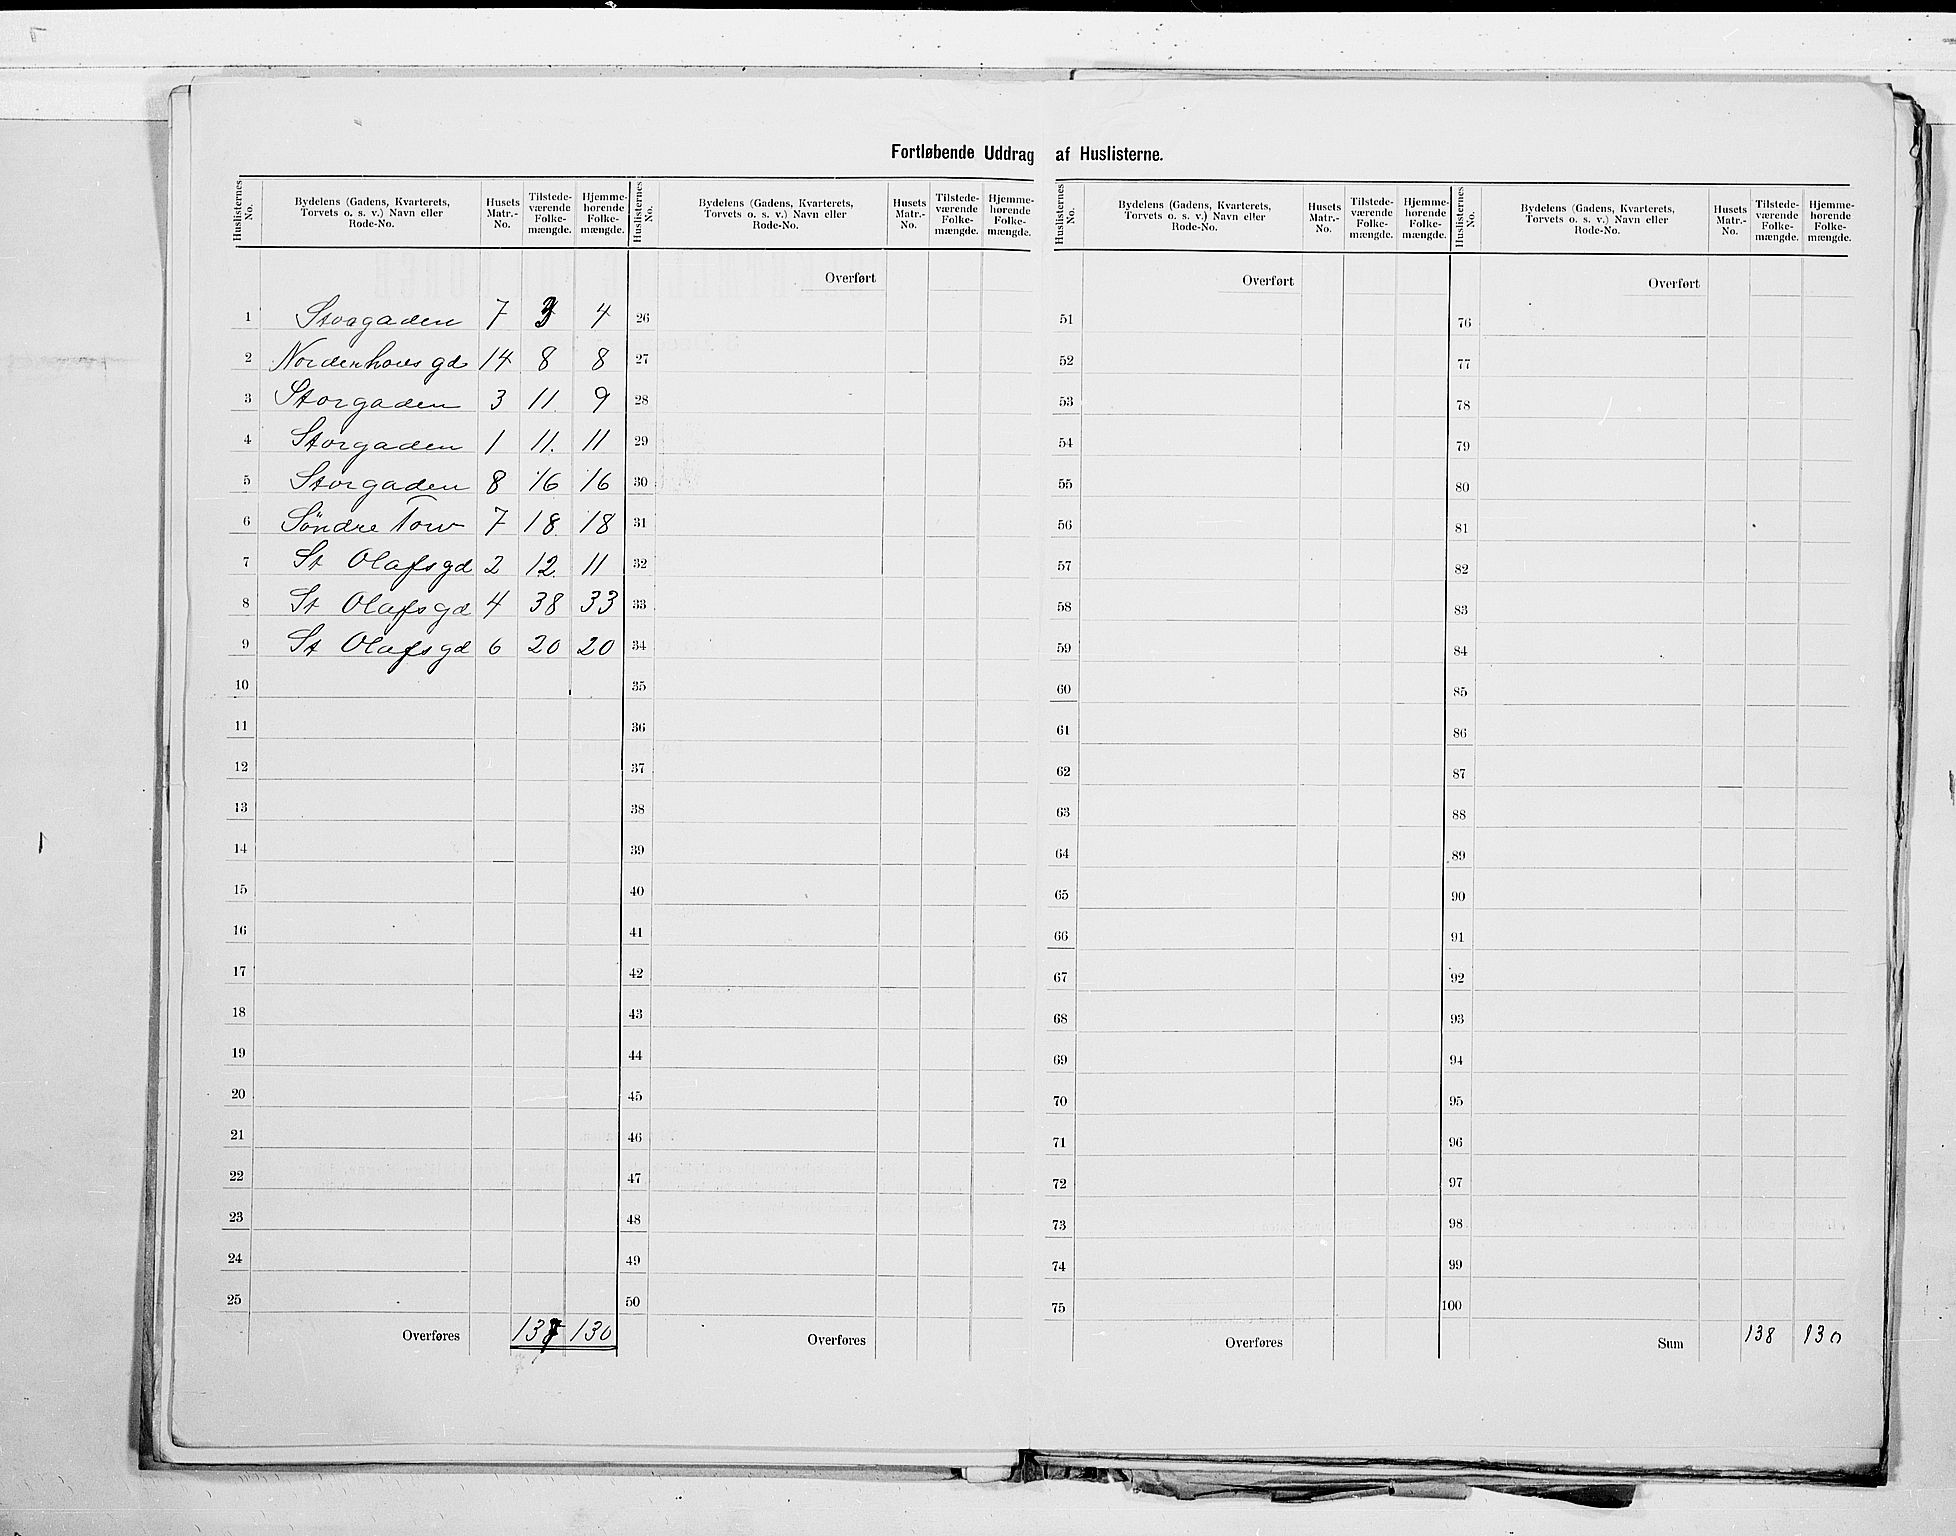 Fortløbende Uddrag af Huslisterne.
Huslisternes No. | Bydelens (Gadens, Kvarterets, Torvets o. s. v.) Navn eller Rode-No. | Husets Matr.-No. | Tilstede-værende Folke-mængde. | Hjemme-hørende Folke-mængde. | Huslisternes No. | Bydelens (Gadens, Kvarterets, Torvets o. s. v.) Navn eller Rode-No. | Husets Matr.-No. | Tilstede-værende Folke-mængde. | Hjemme-hørende Folke-mængde. | Huslisternes No. | Bydelens (Gadens, Kvarterets, Torvets o. s. v.) Navn eller Rode-No. | Husets Matr.-No. | Tilstede-værende Folke-mængde. | Hjemme-hørende Folke-mængde. | Huslisternes No. | Bydelens (Gadens, Kvarterets, Torvets o. s. v.) Navn eller Rode-No. | Husets Matr.-No. | Tilstede-værende Folke-mængde. | Hjemme-hørende Folke-mængde.
Overført Overført Overført
1 Storgaden 7 3 4 26 51 76
2 Nordenhovsgd 14 8 8 27 52 77
3 Storgaden 3 11. 9 28 53 78
4 Storgaden 1 11. 11 29 54 79
5 Storgaden 8 16 16 30 55 80
6 Söndre Torv 7 18. 18 31 56 81
7 St Olafsgd 2 12. 11 32 57 82
8 St Olafsgd 4 38 33 33 58 83
9 St Olafsgd 6 20 20 34 59 84
10 35 60 85
11 36 61 86
12 37 62 87
13 38 63 88
14 39 64 89
15 40 65 90
16 41 66 91
17 42 67 92
18 43 68 93
19 44 69 94
20 45 70 95
21 46 71 96
22 47 72 97
23 48 73 98
24 49 74 99
25 50 75 100
Overføres 137 130 Overføres Overføres Sum 138 130